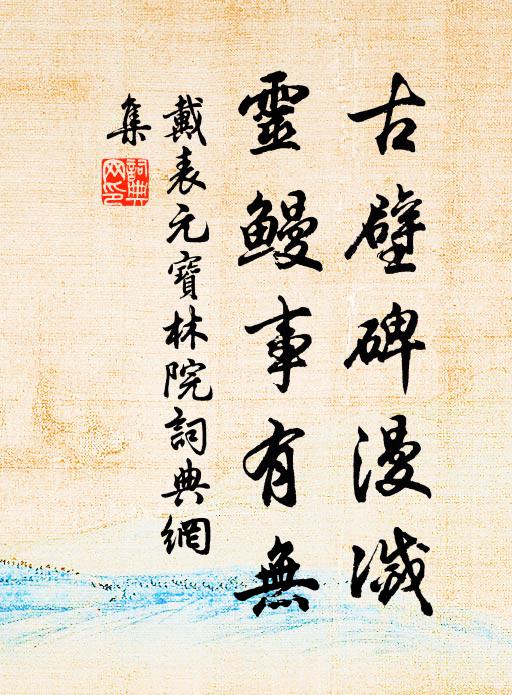 古壁碑漫滅
靈鰻事有無
戴表元寶林院詞典網
集
詞典網印